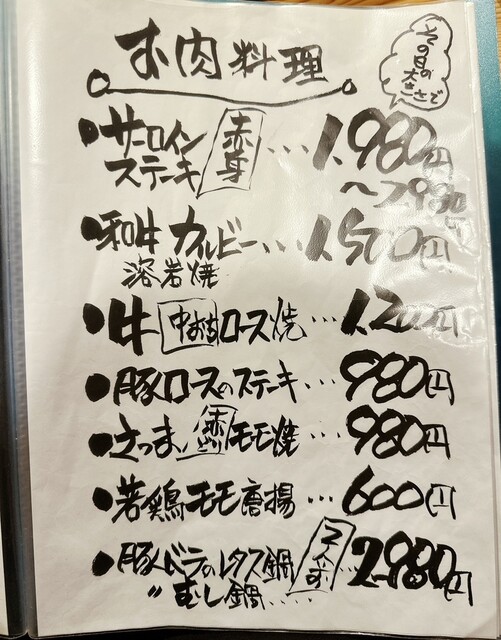 お肉料理
その日の
大きさで
●サーロイン
ステーキ 赤身 … 1.980円
〜2.980円
●和牛カルビー … 1.500円
溶岩焼
●牛中おちロース焼 … 1.200円
●豚ロースのステーキ … 980円
●さつま赤どりモモ焼 … 980円
●若鶏モモ唐揚 … 600円
●豚バラのレタス鍋 2人前 2.980円
〃 むし鍋 ……